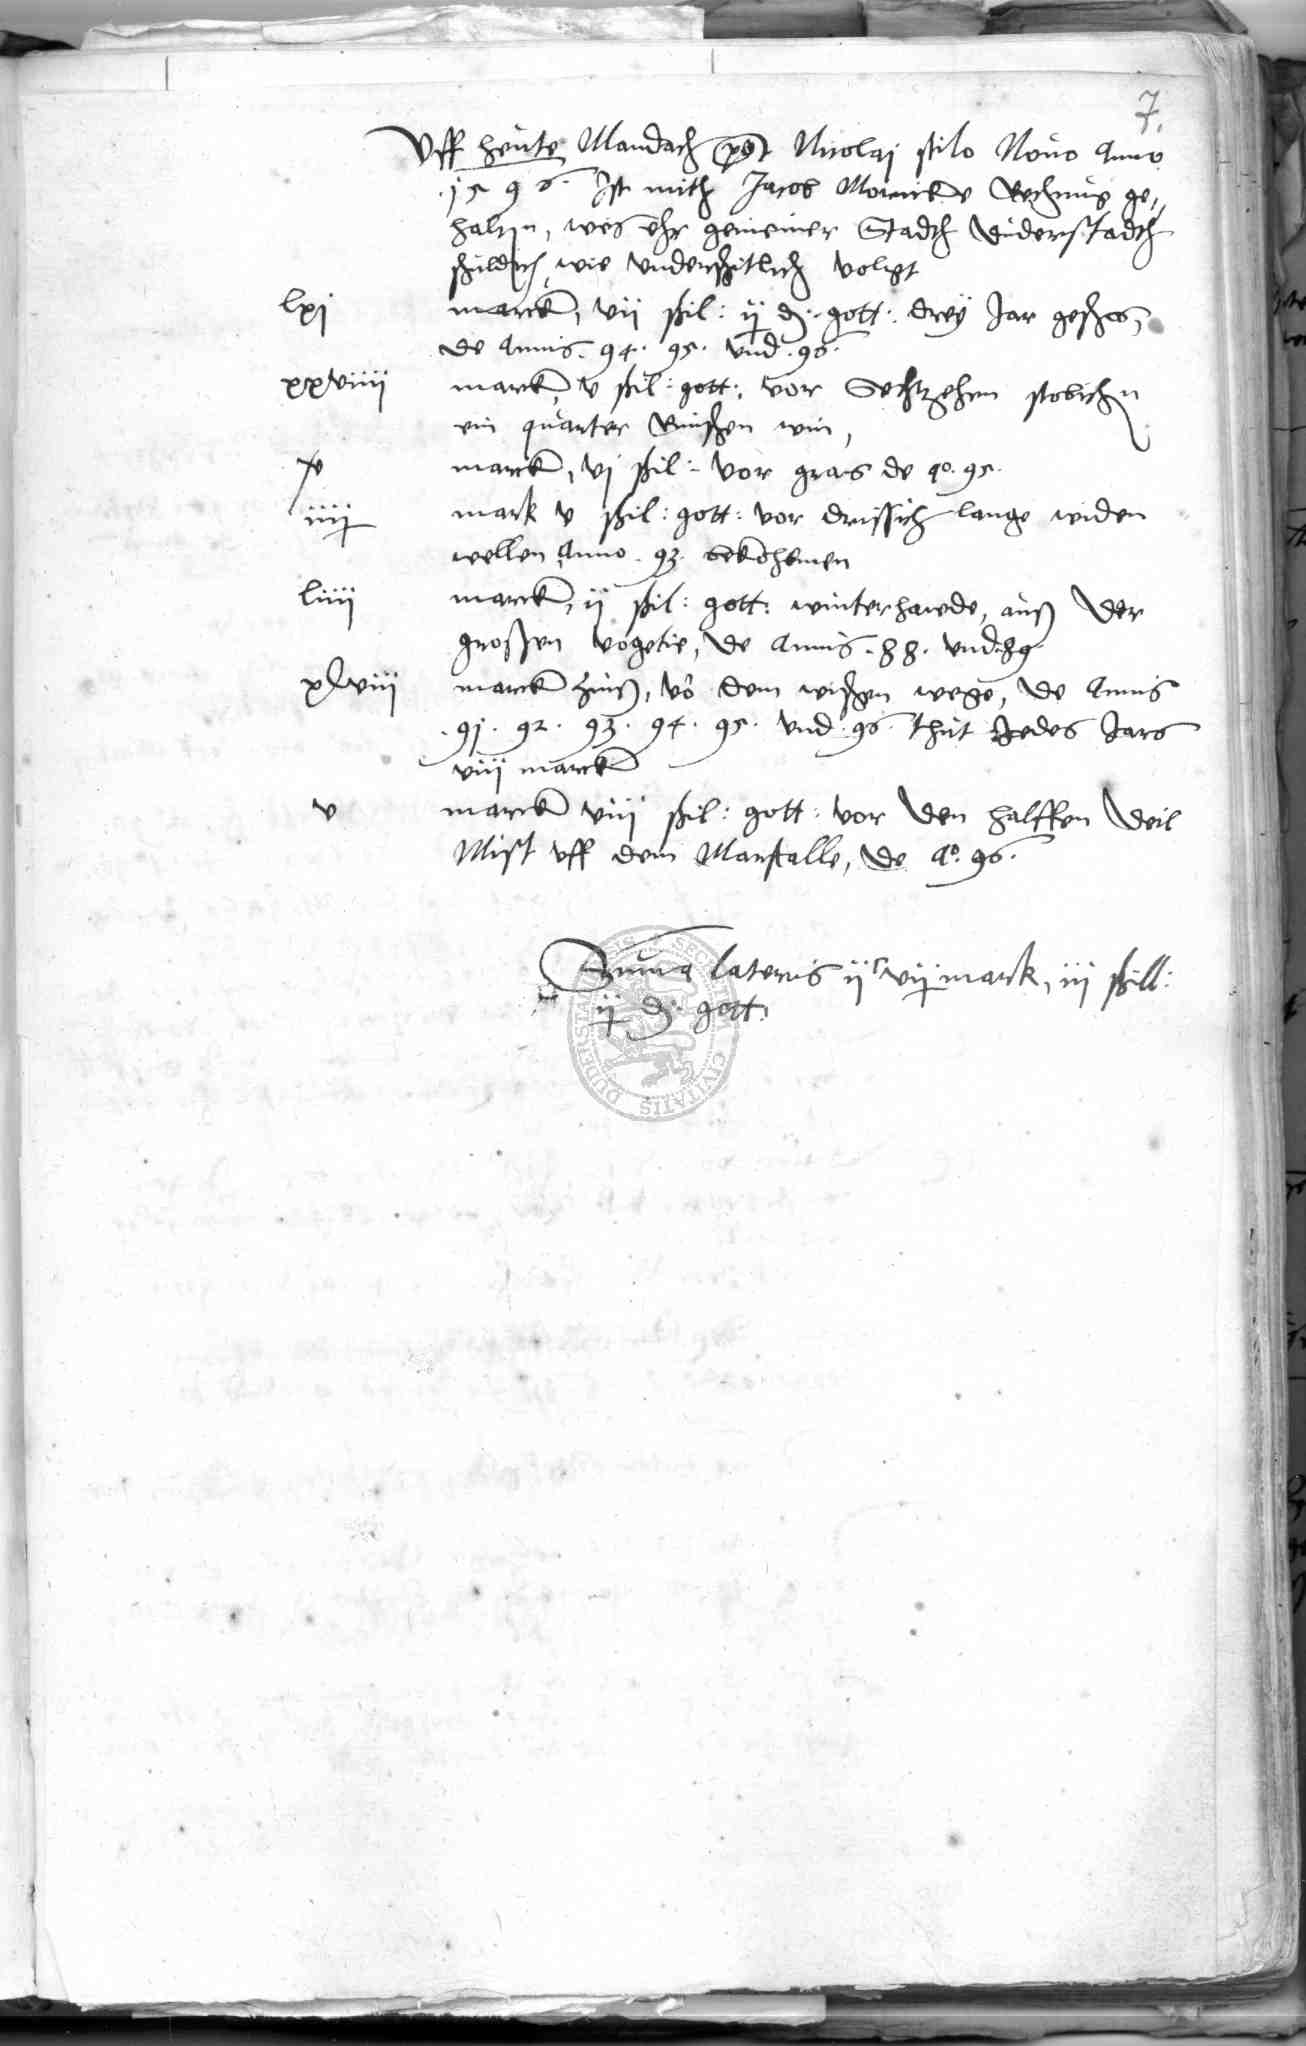 7.
Uff heute Mandach post Nicolaj stilo Novo Anno
.1596. Ist mith Jacob Rechnung ge-
halten, wes ehr gemeiner Stadth Duderstadth
schuldich, wie underschitlich volget
lxj marck, vii schil: ij d. gott: drey Jar geschos,
de Annis. 94. 95. und .96.
xxviiii marck, v schil: gott: vor Sechtzehen stobichen
ein quarter Rinschen win,
x marck, vj schil: vor gras de Ao. 95.
iiij mark v schil: gott: vor drissich lange widen
wellen Anno . 93. bekohemen
liiii marck, ii schil: gott: winterhawde, auß der
grossen vogetie, de Annis .88. und .89
xLviii marck Zinß, vo dem wischen wege, de Annis
.91. 92. 93. 94. 95. und .96. thut Jedes Jars
viii marck
v marck viii schil: gott: vor den halffen deil
Mist uff dem Marstalle, de Ao. 96.
Summa lateris ijC vij mark, iii schill:
ij d. gott.
SECRETUM CIVITATIS DUDERSTADENSIS